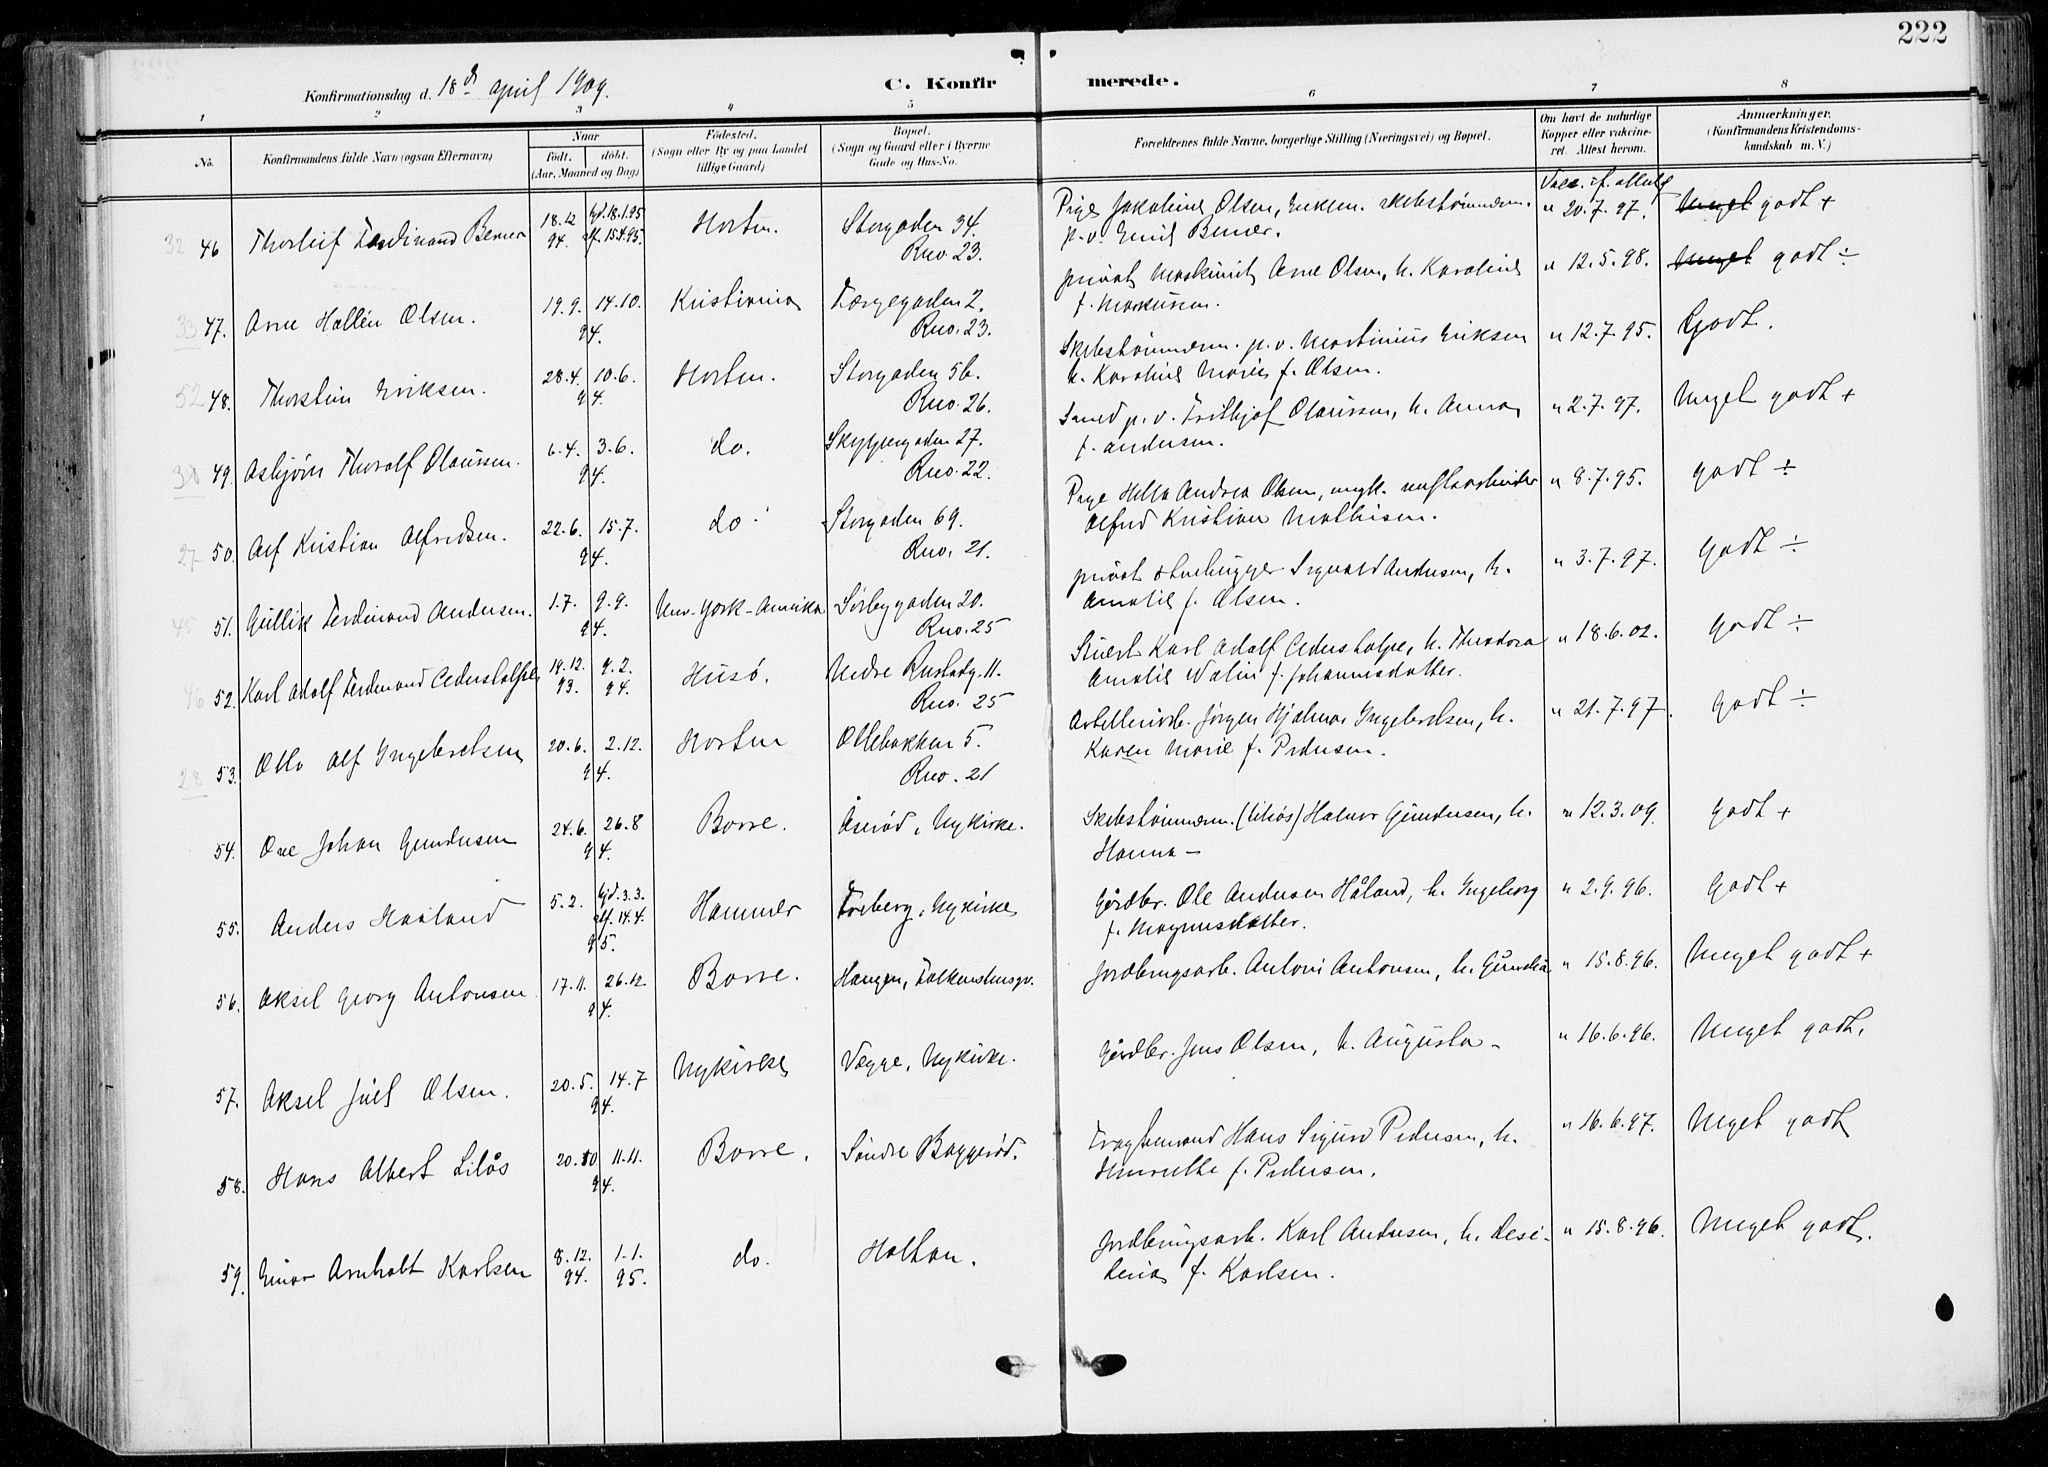 222
Konfirmationsdag d. 18de april 1909.
C. Konfirmerede.
1 2 3 4 5 6 7 8
No.
Konfirmandens fulde Navn (ogsaa Efternavn)
Naar
født. døbt.
(Aar, Maaned og Dag)
Fødested.
(Sogn eller By og paa Landet
tillige Gaard)
Bopæl.
(Sogn og Gaard eller i Byerne
Gade og Hus-No.
Forældrenes fulde Navne, borgerlige Stilling (Næringsvei) og Bopæl.
Om havt de naturlige
Kopper eller vakcine-
ret. Attest herom.
Anmærkninger.
(Konfirmandens Kristendoms-
kundskab m. V.)
Vacc. if. attest
32 46 Thorleif Ferdinand Berner 18.12 94. hjd. 18.1.95 15.4.95. Horten. Storgaden 34.
Rno. 23.
Pige Jakobine Olsen, skibstømmerm.
p.v. Emil Berner.
" 20.7.97. Meget godt +
33 47. Arne Hallén Olsen. 19.9. 14.10. 94. Kristiania Færgegaden 2.
Rno. 23.
privat maskinist Arne Olsen, h. Karoline
f. Markussen.
" 12.5.98. Meget godt ÷
52 48. Thorstein Eriksen. 28.4. 10.6. 94. Horten. Storgaden 56.
Rno. 26.
Skibstømmerm. p.v. Martinius Eriksen
h. Karoline Marie f. Olsen.
" 12.7.95. Godt.
30 49. Asbjörn Thoralf Olaussen. 6.4. 3.6. 94. do. Skippergaden 27.
Rno. 22.
Smed p.v. Frithjof Olaussen, h. Anna
f. Andersen.
" 2.7.97. Meget godt +
27 50. Alf Kristian Alfredsen. 22.6. 15.7. 94. do. Storgaden 69.
Rno. 21.
Pige Hilda Andrea Olsen, ungk.
Alfred Kristian Mathisen.
" 8.7.95. godt ÷
45 51. Gullik Ferdinand Andersen. 1.7. 9.9. 94. New-York-Amerika Sørbygaden 20.
Rno. 25
privat stenhugger Sigvald Andersen, h.
Amalie f. Olsen.
" 3.7.97. godt ÷
46 52. Karl Adolf Ferdinand Cederstolpe 19.12. 93. 4.2. 94. Husö. Nedre Rustadg. 11.
Rno. 25
Stuert Karl Adolf Cederstolpe, h. Theodora
Amalie Walin f. Johannesdatter.
" 18.6.02. godt ÷
28 53. Otto Alf Ingebretsen 20.6. 2.12. 94. Horten Ollebakken 5.
Rno. 21
Artilleriarb. Jørgen Hjalmar Ingebretsen, h.
Karen Marie f. Pedersen.
" 21.7.97. godt ÷
54. Ove Johan Gundersen 24.6. 26.8 94. Borre. Åserød, Nykirke.
Skibstømmerm. (tilhøs) Halvor Gundersen, h.
Hanna –
" 12.3.09. godt +
55. Anders Haaland 5.2. hjd. 3.3. 14.4. 95. Hammer Freberg, Nykirke
Gårdbr. Ole Andersen Håland, h. Ingeborg
f. Magnusdatter.
" 2.9.96. godt +
56. Aksel Georg Antonsen 17.11. 26.12. 94. Borre. Haugen, Falkenstensgr.
Jordbrugsarb. Antoni Antonsen, h. Gunelia
" 15.8.96. Meget godt +
57. Aksel Juel Olsen. 20.5. 14.7 94. Nykirke Vegge, Nykirke.
Gårdbr. Jens Olsen, h. Augusta –
" 16.6.96. Meget godt.
58. Hans Albert Lilås 20.10 11.11. 94. Borre. Søndre Baggerød.
Fragtemand Hans Sigurd Pedersen, h.
Henriette f. Pedersen.
" 16.6.97. Meget godt
59. Einar Arnholt Karlsen 8.12. 94. 1.1. 95. do. Holtan.
Jordbrugsarb. Karl Andersen, h. Desi-
deria f. Karlsen.
" 15.8.96. Meget godt.